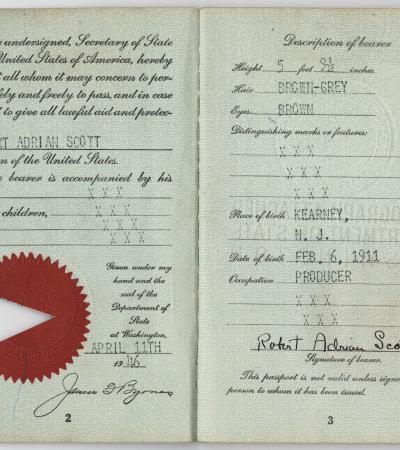 e undersigned, Secretary of State
United States of America, hereby
t all whom it may concern to per-
ely and freely to pass, and in case
to give all lawful aid and protec-
RT ADRIAN SCOTT
en of the United States.
e bearer is accompanied by his
X X X
children, X X X
X X X
X X X
Given under my
hand and the
seal of the
Department of
State
at Washington,
APRIL 11TH
19 46
James F Byrnes
2
Description of bearer
Height 5 feet 9½ inches.
Hair BROWN-GREY
Eyes BROWN
Distinguishing marks or features:
X X X
X X X
X X X
Place of birth KEARNEY,
N. J.
Date of birth FEB. 6, 1911
Occupation PRODUCER
X X X
X X X
Robert Adrian Sco
Signature of bearer.
This passport is not valid unless signe
person to whom it has been issued.
3